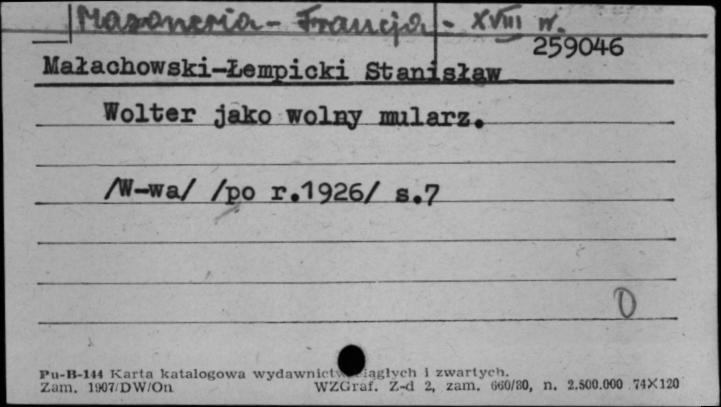 Masoneria - Francja - XVIII w.
259046
Małachowski-Łempicki Stanisław
Wolter jako wolny mularz.
/W-wa/ /po r.1926/ s.7
Pu-B-144 Karta katalogowa wydawnictw ciągłych i zwartych.
Zam. 1907/DW/On WZGraf. Z-d 2, zam. 660/80, n. 2.500.000 74×120